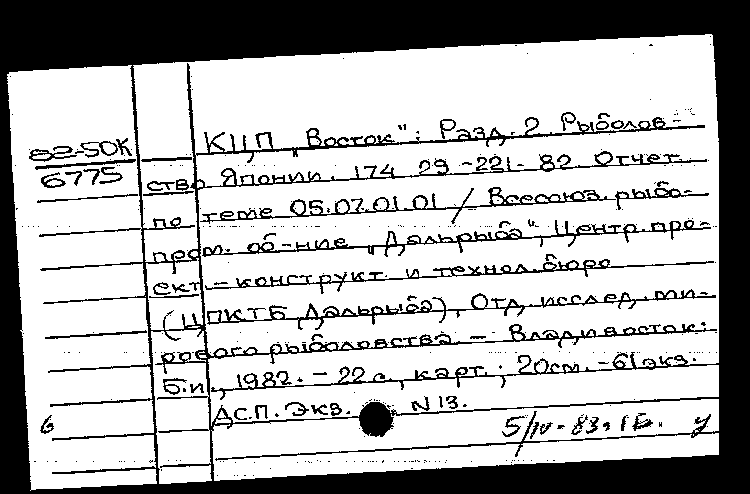 82-5ДК
6775
КЦП „Восток": Разд. 2 Рыболов-
ство Японии. 174 29-221-82. Отчет
по теме 05.07.01.01 / Всесоюз. рыбо-
пром. об-ние „Дальрыба", Центр. про-
ект.-конструкт. и технол. бюро
(ЦПКТБ „Дальрыба), Отд. исслед. ми-
рового рыболовства. - Владивосток:
Б.и., 1982. - 22 с., карт.; 20см. - 61 экз.
ДСП. Экз. N 13.
6
5/IV-83. 1Б. У